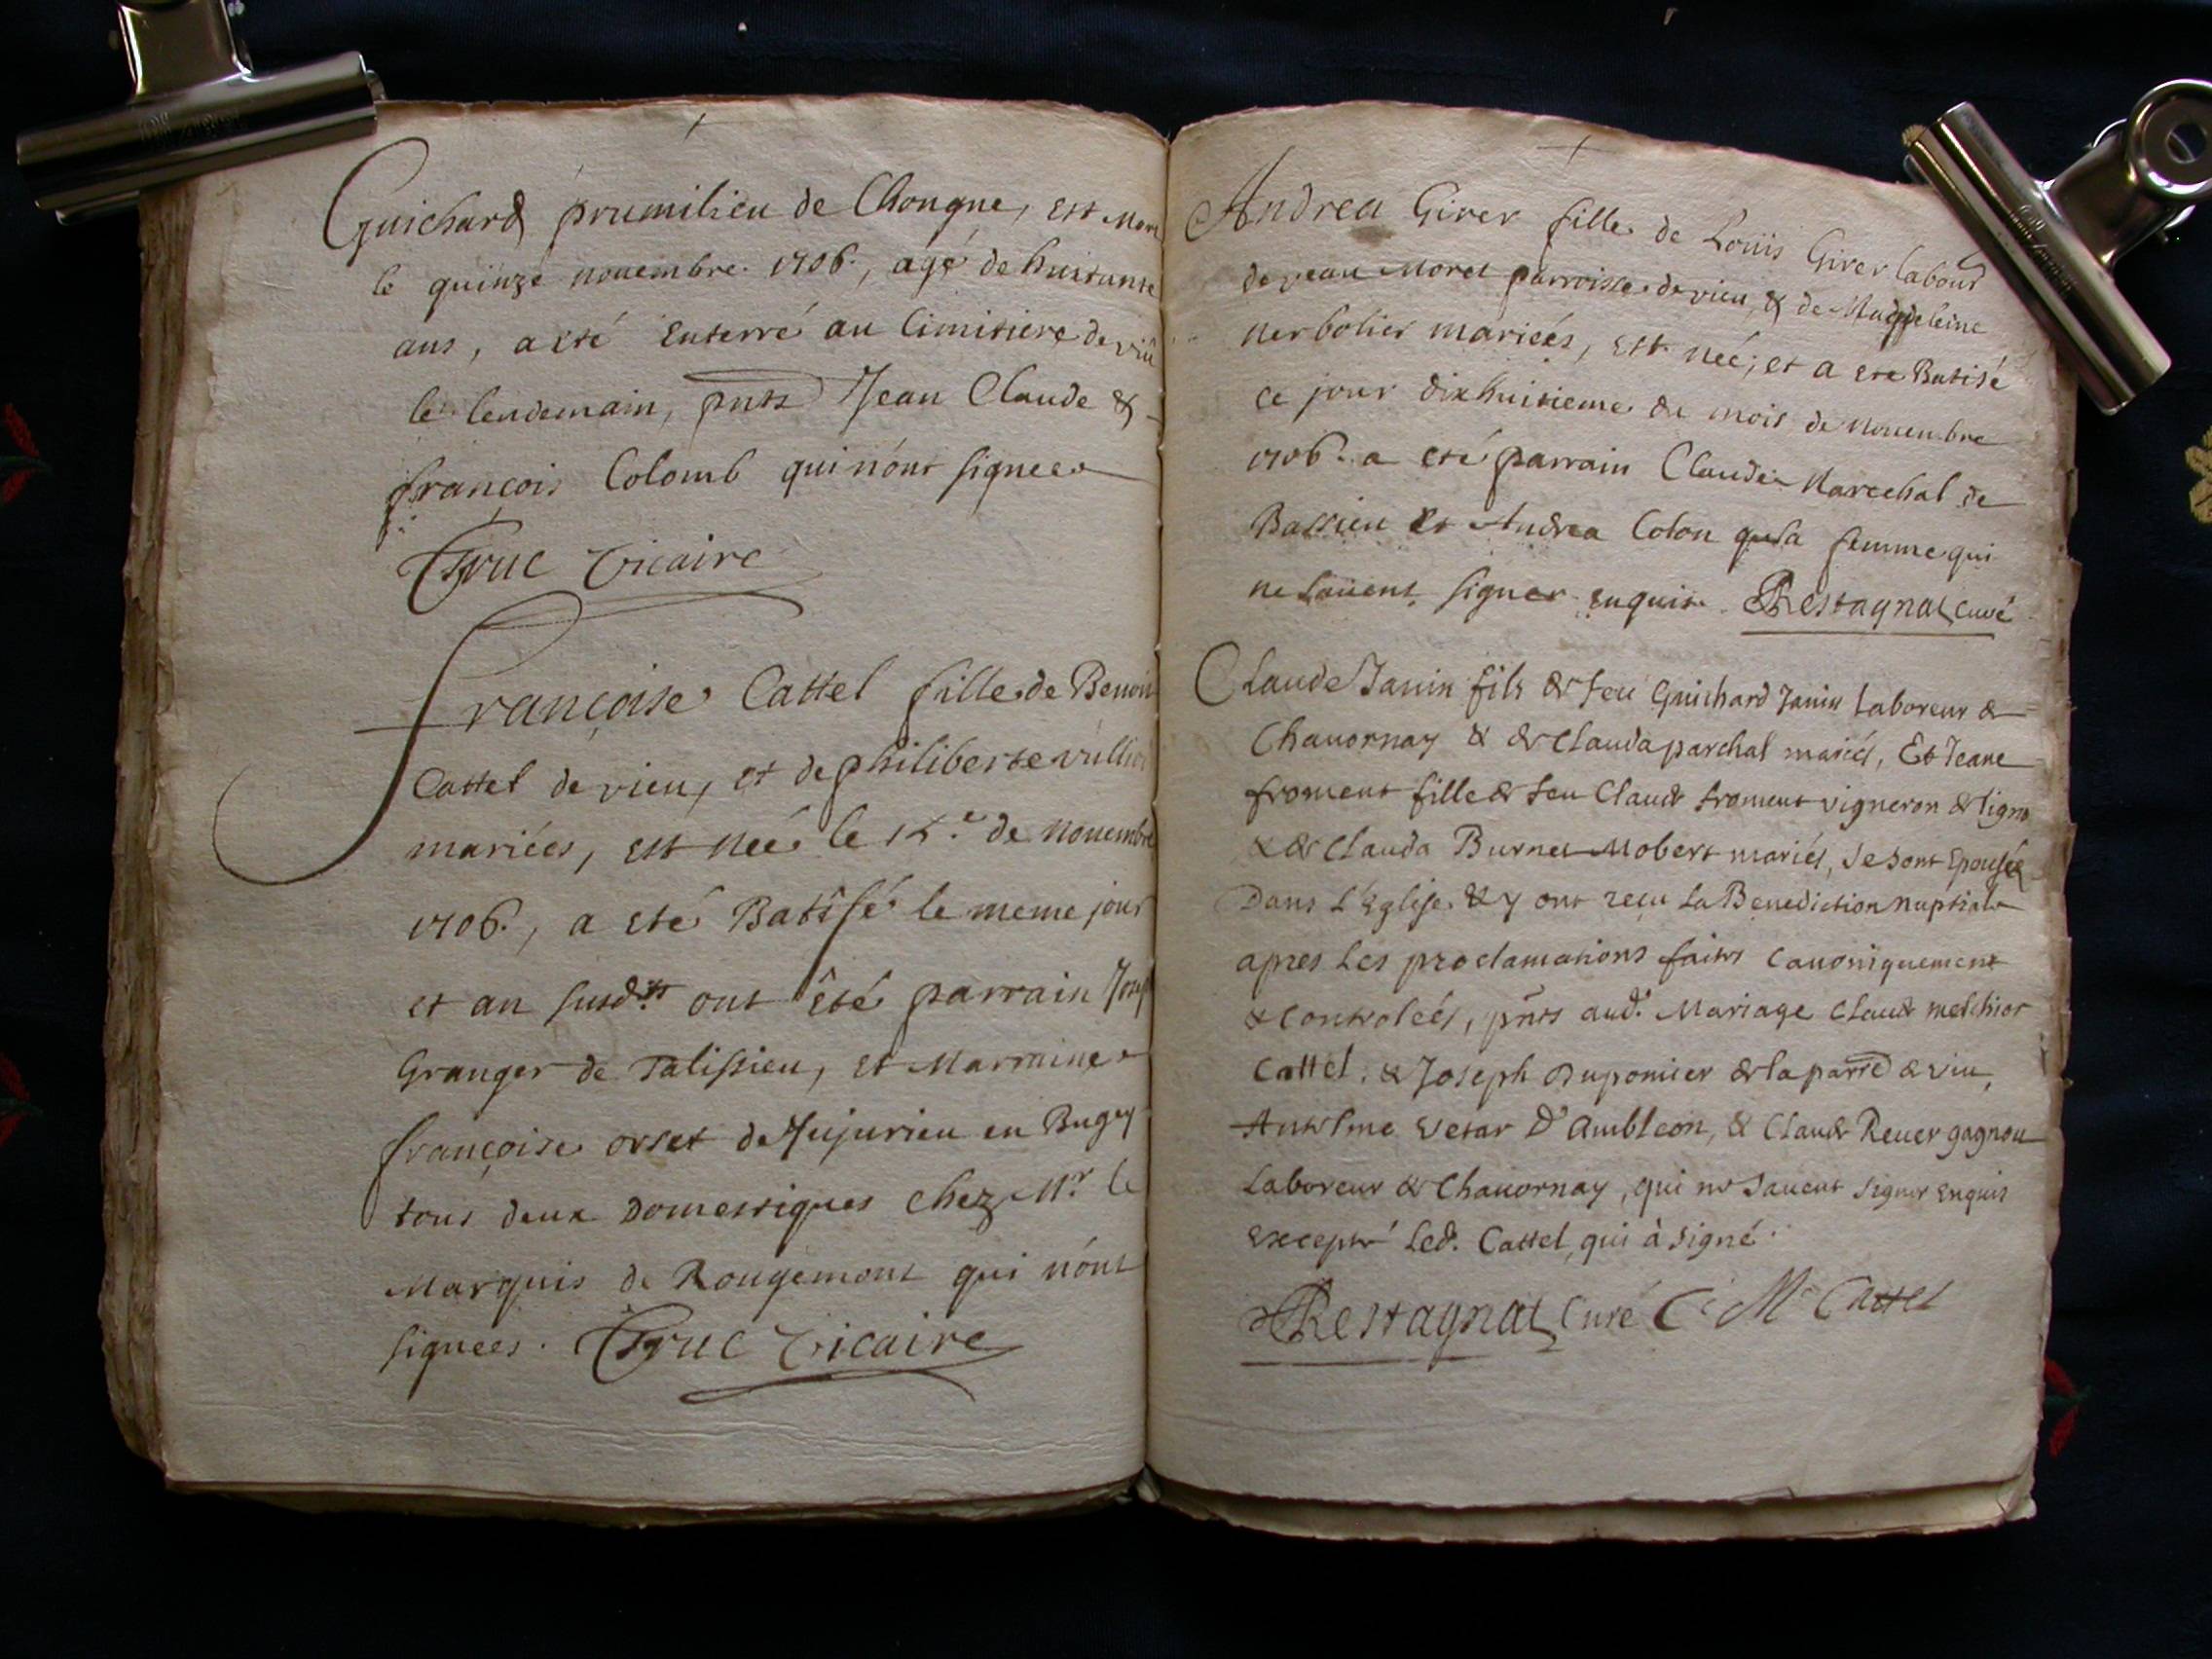 Guichard prumilieu de Chongne, est mort
le quinze nouembre. 1706., agé de huitante
ans, a eté enterré au Cimitiere de viû
le lendemain, pnts Jean Claude &
françois Colomb qui n'ont signees
Truc Vicaire
françoise Cattel fille de Benoit
Cattel de vieu, et de philiberte vullio
mariées, est née le 15.e de nouembre
1706., a eté Batisé le meme jour
et an susd.ts ont êté parrain Josep
Granger de Talissieu, et Marraine
françoise orset de Jujurieu en Bugey
tous deux Domestiques chez M.r le
Marquis de Rougemont qui n'ont
signees. Truc Vicaire
Andrea Girer fille de Loüis Girer labour
de veau Moret parroisse de vieu, & de Magdeleine
nerbolier mariées, est née, et a ete Batisé
ce jour dixhuitieme du mois de nouembre
1706. a eté parrain Claude Marechal de
Bassieu et Andrea Colon sa femme qui
ne sauent signer enquis. Restagnat curé
Claude Janin fils de feu Guichard Janin Laboreur de
Chauornay & de Clauda parchal mariés, Et Jeane
froment fille de feu Claude froment vigneron de ligno
& de Clauda Burnet Mobert mariés, se sont Epousés
Dans L'Eglise & y ont reçu La Benediction nuptiale
apres Les proclamations faites Canoniquement
& Controleés, pnts aud.t Mariage Claude melchior
Cattel, & Joseph Dupomier de la parre de viu,
Antelme vetar D'Ambleon, & Claude Reuer gagnou
Laboreur de Chauornay, qui ne sauent signer enquis
Excepté Led. Cattel qui à signé.
Restagnat Curé C M Cattel